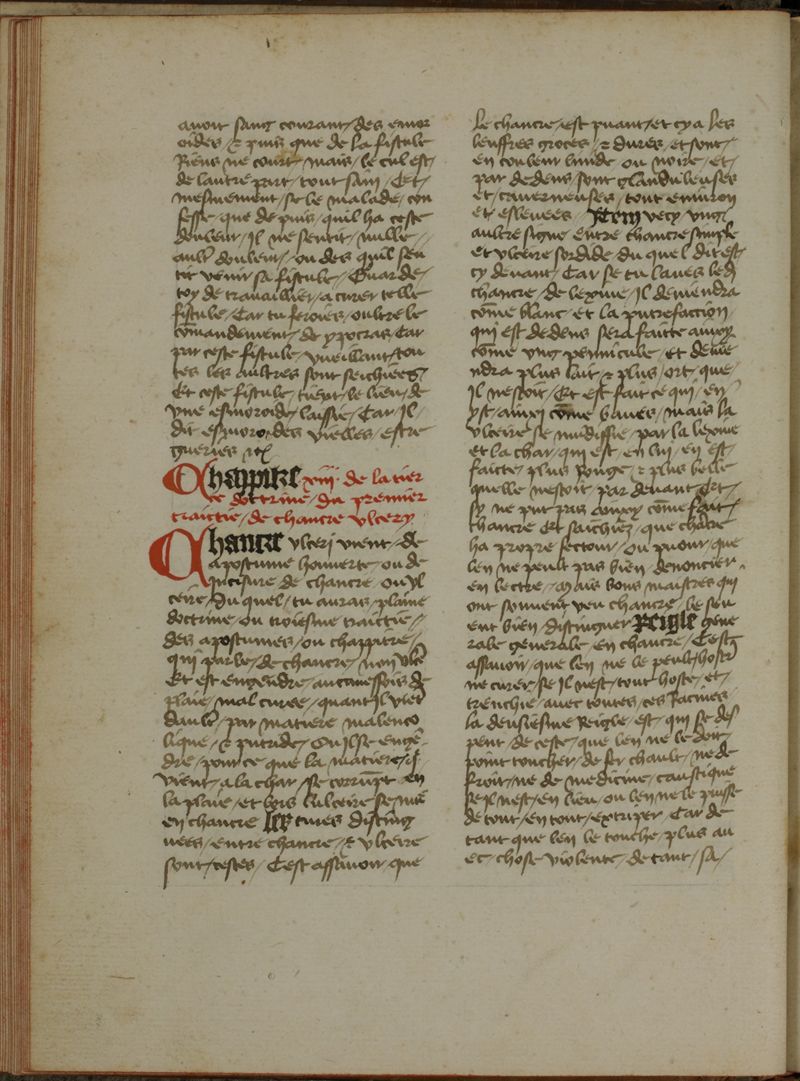 avoir sang courant / des emor
oides / et puis que de la fistule
Riens ne court / mais / le cul est /
de lautre part / tout sain / Et /
mesmement / se le malade / con
fesse / que depuis / quil ha ceste
douleur / Il ne sentit / nulle //
aultre douleur / ou des quil sen
tit venir sa fistule / Garde /
toy de travaillier / a curer telle
fistule / Car tu feroies / oultre le
cōmandement / de ypocras / Car
par ceste fistule / vueillant / tou
tes les aultres sont seichiees /
Et ceste fistule / tient / le lieu / de
vne esmoroide / laissie / Car / Il /
dit esmoroides vielles / estre
gueries
Chappitre xiiij de la tier
ce doctrine / du premier
traictie / de chancre vlcery
Chancre vlceri vient / de
apostume houverte / ou de
incisure de chancre / ou vl
cere / Du quel / tu auras / plaine
doctrine / ou troiesme traictie //
des apostumes / ou chappitre //
qui parle / de chancre / non vlce
Et est engendre / aucunesfois de
plaie / mal curee / quant Il viet
dault / par matiere / malenco
lique / et putride / Ou Il se engē
dre / pour ce que la matiere / q̄
vient / a la char / se corrūpt en
la plaie / et lors lulcere se mue
en chancre Les cures disting
uees / entre chancre / et vlcere
sont / cestes / Cest assavoir / que
le chancre / est puant / et cy a les
leuffres groces / et dures / et sont /
en couleur livide ou noire / et /
par dedens / sont glanduleuses
et / caverneuses / tout environ
et eslevees / Item vecy vng /
aultre signe entre chancre simple
et vlcere sordide / du quel dit est /
cy devant / Car se tu laves led
chancre / de lexive / Il deviendra
cōme blanc et la putrefaction /
qui est dedens sera faicte aussy
cōme vng pennicule / et devie
ndra plus lait / et plus / ort / que /
Il nestoit / Et est fait ce qui / en
yst / aussi cōme laines / mais la
vlcere se mūdiffie / par la lexive
et la char / qui est en lui / en est /
faicte plus Rouge / et plus belle
quelle nestoit / par devant / Et /
sy ne put pas aussy cōme fait /
chancre Et saichiez / que chācre
ha propre fecteur / ou pueur / que
len ne peult pas bien denoncier
en lectre / Mais bons maistres qui
ont souvent veu chancre / le sev
ent bien / distinguer Reigle gene
rale generale / en chancre / Cest
assavoir / que len ne le peult / hoster
ne curer / se Il nest / tout hoste / et /
trenchie / avec toutes / ces Racines
la deusiesme Reigle / est / qui se des
pent / de ceste / que len ne le doit /
point toucher / de fer chault / ne de
froit / ne de medicine / caustique
se Il nest / en lieu / ou len ne le puisse
de tout / en tout / extirper / Car de
tant que len le touche / plus au
ec chose violente / de tant / sa /